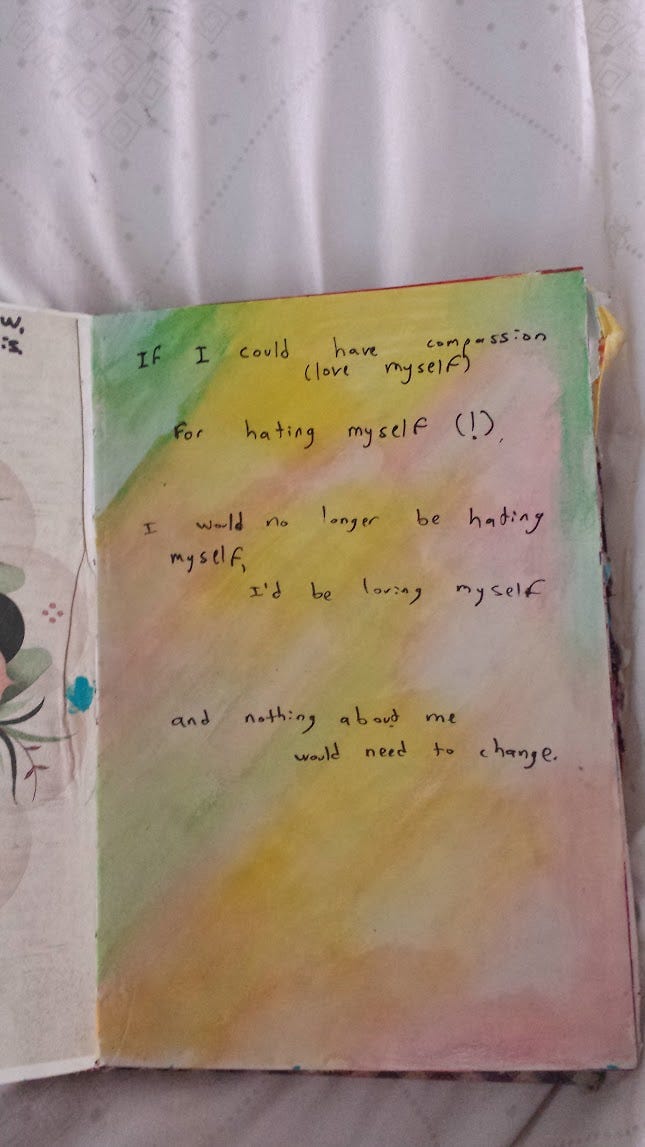 w,
is
If I could have compassion
(love myself)
for hating myself (!),
I would no longer be hating
myself,
I'd be loving myself
and nothing about me
would need to change.